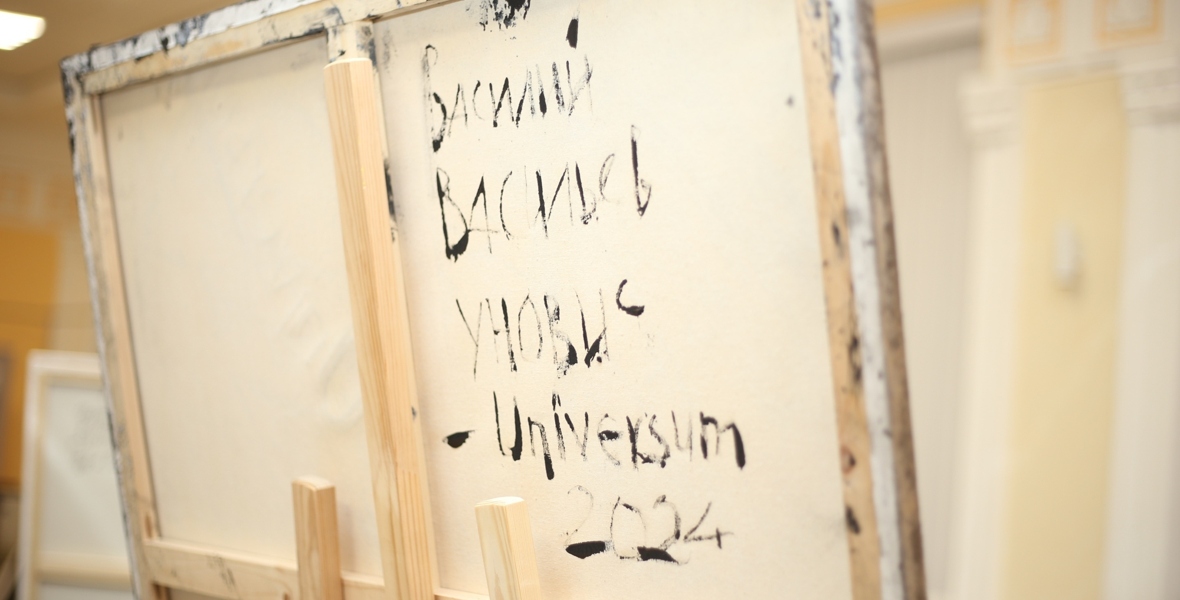 Василий
ВАСИЛЬЕВ
УНОВИС
- Universum
2024